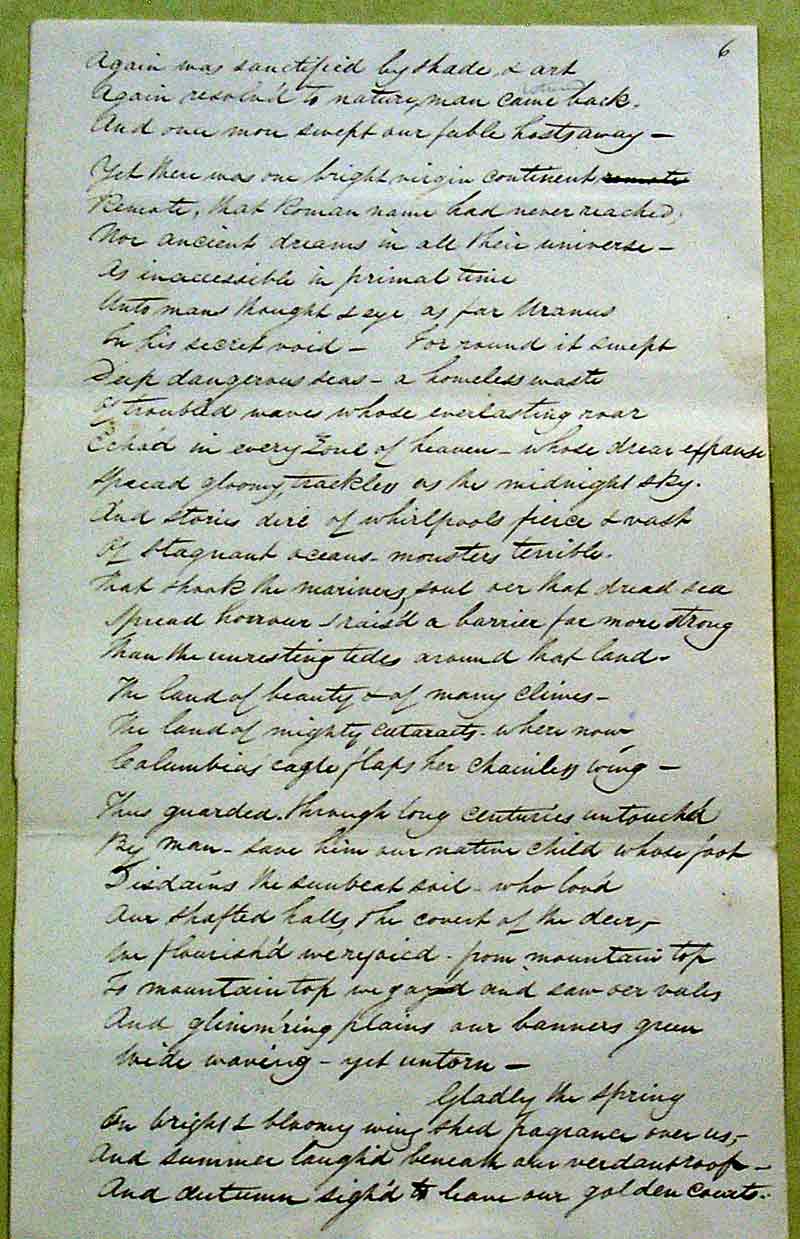 6
Again was sanctified by shade, & art
Again resolv'd to nature, man came back.
And once more swept our feble hosts away —
Yet there was one bright virgin continent remote
Remote, that Roman name had never reached,
Nor ancient dreams in all their universe —
As inaccessible in primal time
Unto mans thought & eye as far Uranus
In his secret void — For round it swept
Deep dangerous seas — a homeless waste
Of troubled waves whose everlasting roar
Echo'd in every Zone of heaven — whose drear expanse
Spread gloomy, trackless as the midnight sky.
And stories dire of whirlpools fierce & vast
Of stagnant oceans — monsters terrible.
That shook the mariners, soul oer that dread sea
Spread horrour & rais'd a barrier far more strong
Than the unresting tides around that land.
The land of beauty & of many climes —
The land of mighty cataracts. where now
Columbias' eagle flaps her chainless wing —
Thus guarded, through long centuries untouch'd
By man — save him our native child whose foot
Disdains the sunbeat soil — who lov'd
Our shafted halls, the covert of the deer, —
We flourish'd we rejoic'd — from mountain top
To mountain top we gaz'd and saw oer vales
And glimm'ring plains our banners green
Wide waving — yet untorn —
Gladly the Spring
On bright & bloomy wing shed fragrance over us, —
And summer laugh'd beneath our verdant roof —
And Autumn sigh'd to leave our golden courts.